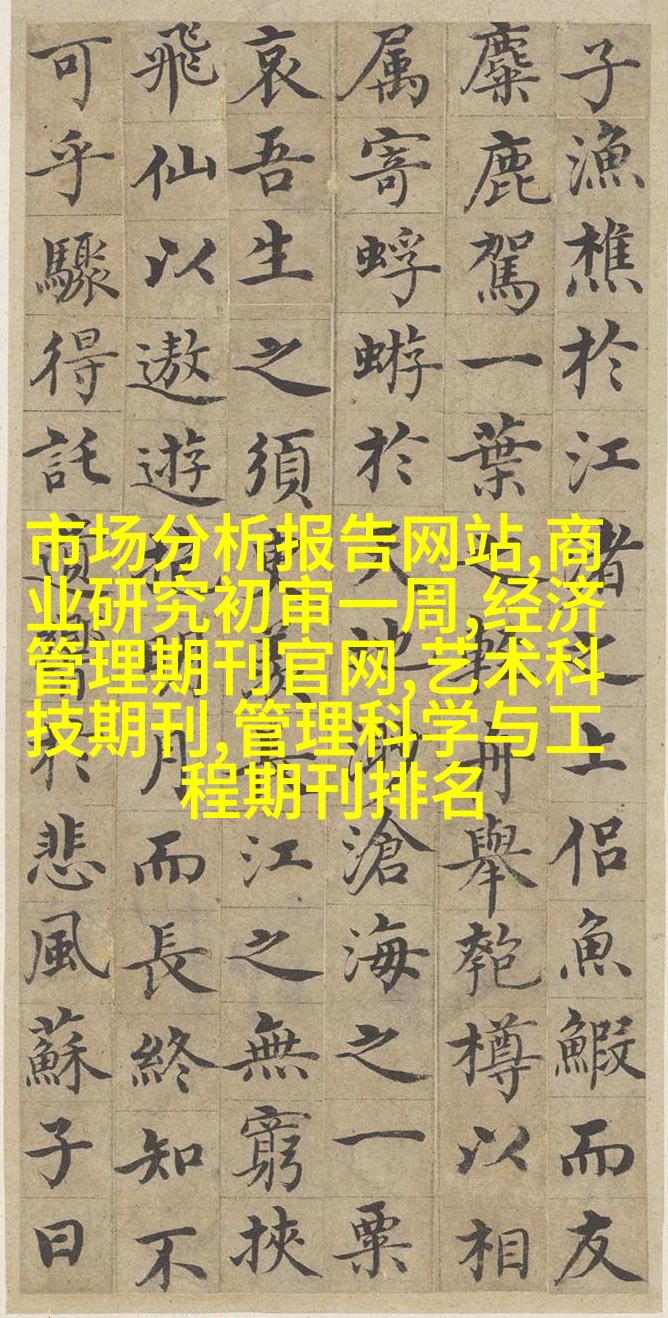 子漁樵於江渚之上侣魚鰕而友
麋鹿駕一葉之輕舟舉匏樽以相
属寄蜉蝣於天地渺滄海之一粟
哀吾生之須臾羡長江之無窮挾
飛仙以遨遊抱明月而長終知不
可乎驟得託遺響於悲風蘇子曰
市场分析报告网站,商
业研究初审一周,经济
管理期刊官网,艺术科
技期刊,管理科学与工
程期刊排名